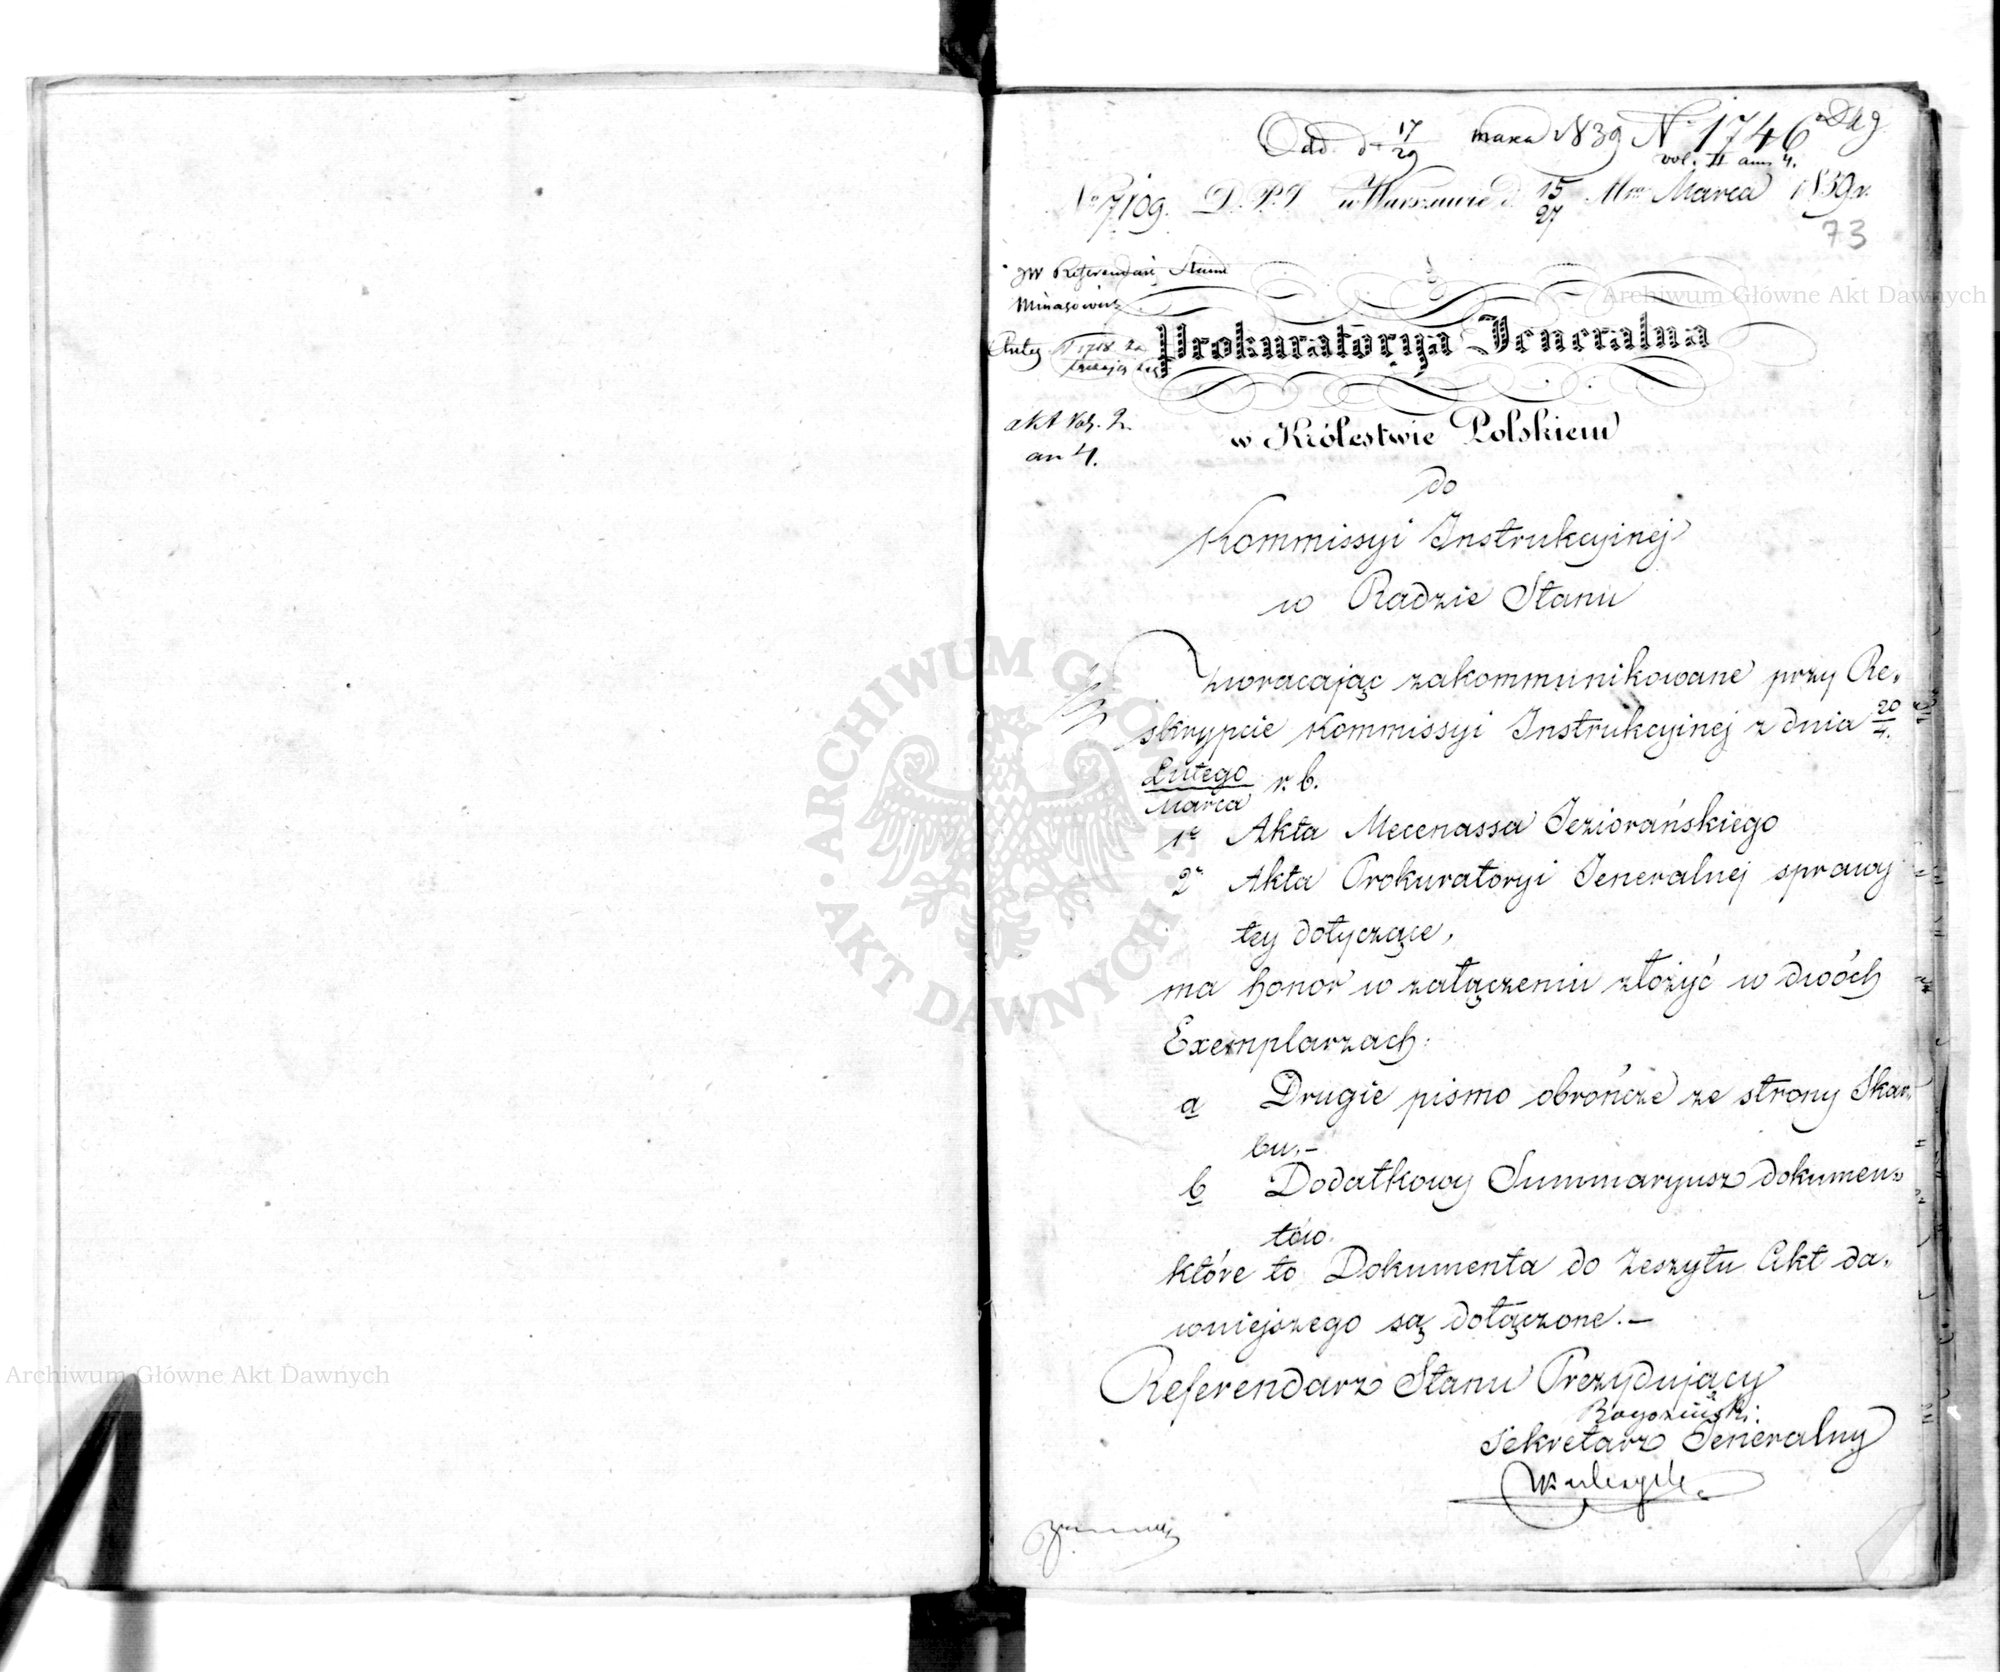 Odd. d. 17/29 marca 1839 N 1746
vol. II ann 4.
No 7109. D.P.J w Warszawie d. 15/27 Mca Marca 1839 r.
73
JW Referendarz Stanu
Minasowicz
akt Vol. 2.
an 4.
Prokuratorya Jeneralna
w Królestwie Polskiem
do
Kommissyi Instrukcyinej
w Radzie Stanu
Zwracając zakommunikowane przy Re-
skrypcie Kommissyi Instrukcyinej z dnia 20/4.
Lutego/Marca r. b.
1e Akta Mecenassa Jeziorańskiego
2e Akta Prokuratoryi Jeneralnej sprawy
tey dotyczące,
ma honor w załączeniu złożyć w dwóch
Exemplarzach:
a Drugie pismo obrończe ze strony Skar-
bu.-
b Dodatkowy Summaryusz dokumen-
tów.
które to Dokumenta do Zeszytu Akt da-
wniejszego są dołączone.-
Referendarz Stanu Prezydujący
Sekretarz Jeneralny
Archiwum Główne Akt Dawnych
Archiwum Główne Akt Dawnych
ARCHIWUM GŁÓWNE AKT DAWNYCH